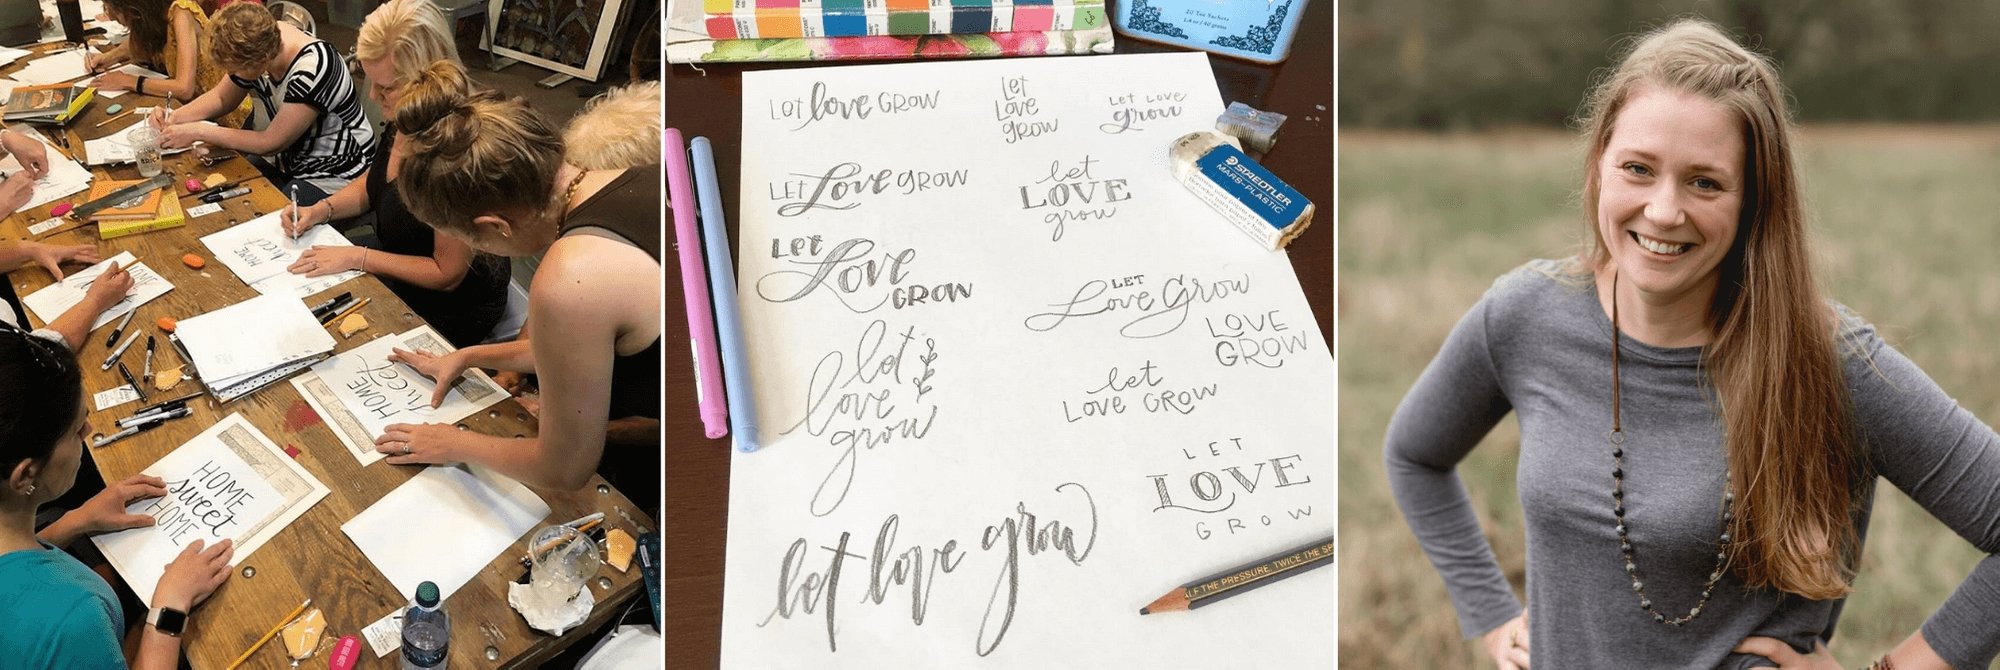 HOME
sweet
HOME
HOME
sweet
HOME
sweet
20 Tea Sachets
1.4 oz / 40 grams
Let love GROW
Let
Love
grow
LET LOVE
grow
LET Love GROW
let
LOVE
grow
LET
Love
GROW
LET
Love Grow
LOVE
GROW
let
love
grow
let
LOVE GROW
LET
LOVE
GROW
let love grow
STAEDTLER
MARS-PLASTIC
HALF THE PRESSURE, TWICE THE SP